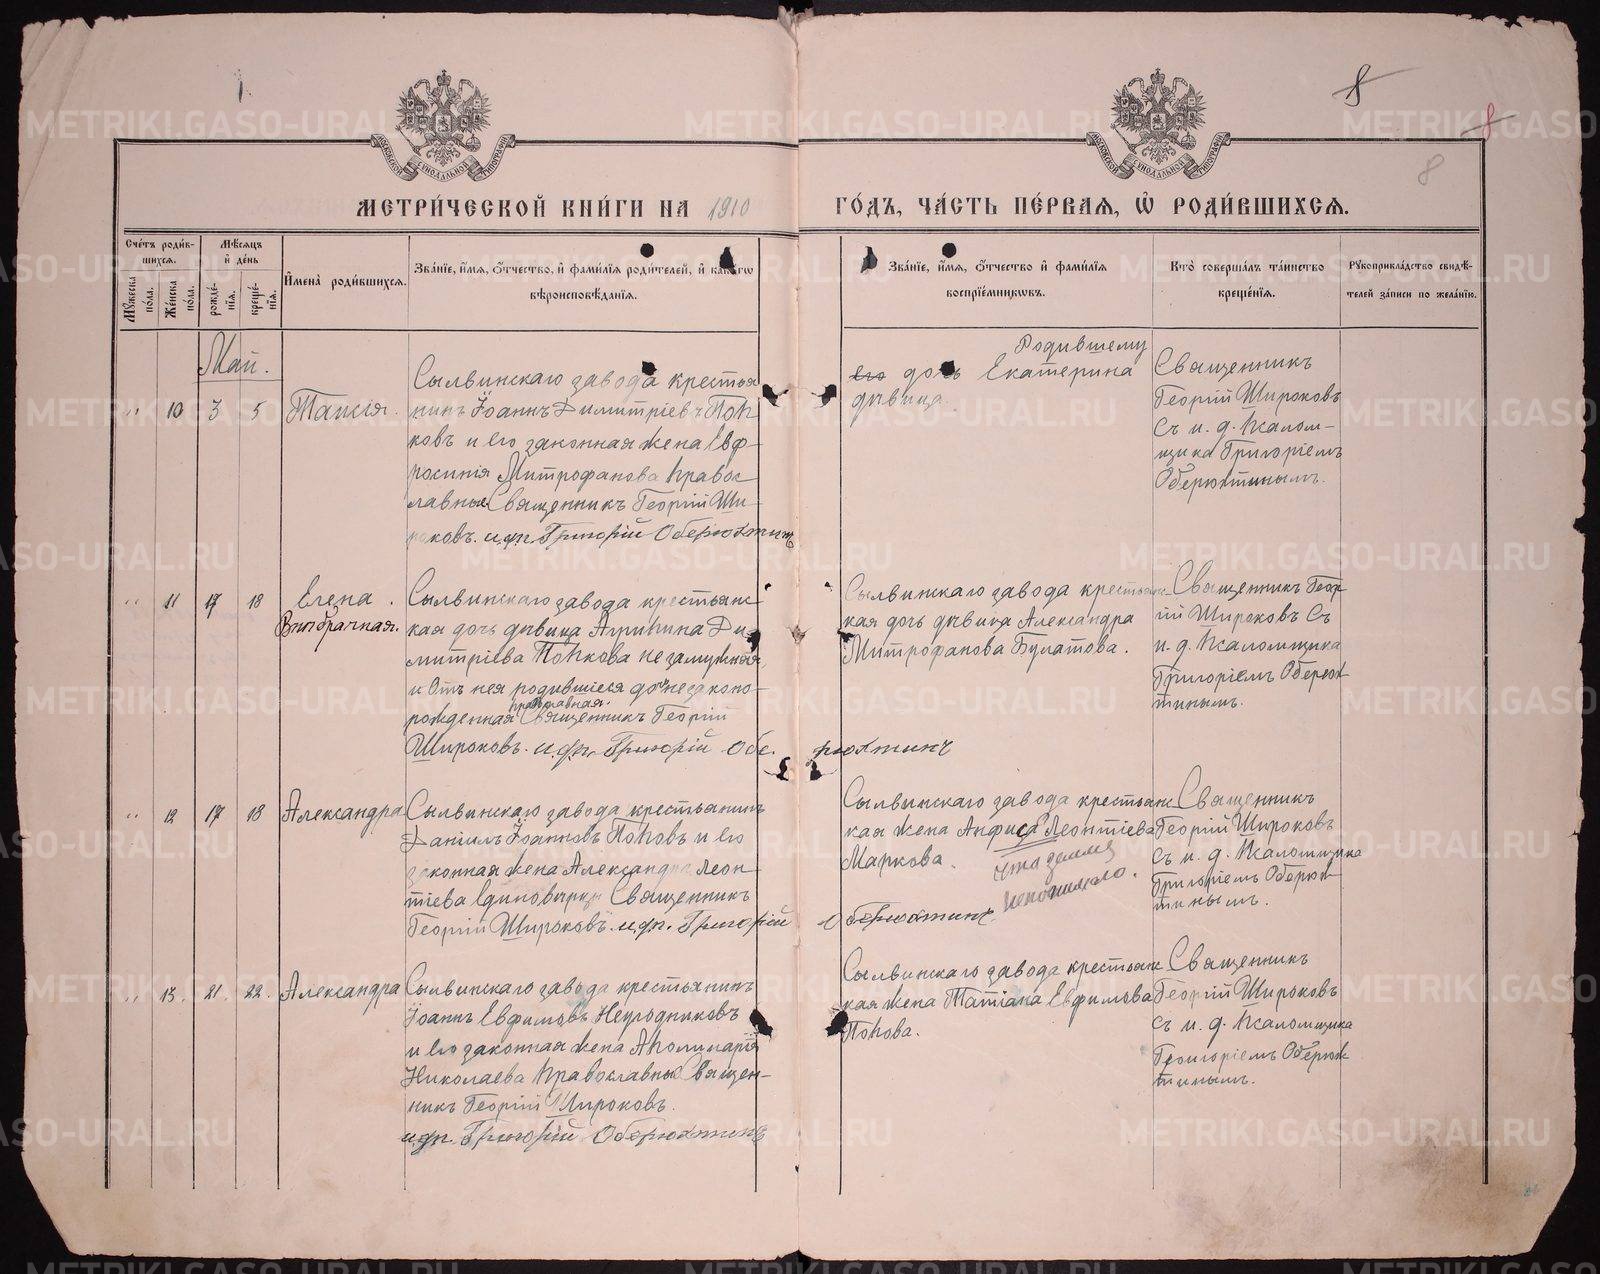 8
8
8
МОСКОВСКОЙ СѴНОДАЛЬНОЙ ТИПОГРАФІИ
МОСКОВСКОЙ СѴНОДАЛЬНОЙ ТИПОГРАФІИ
МЕТРИ́ЧЕСКОЙ КНИ́ГИ НА 1910 ГО́ДЪ, ЧА́СТЬ ПЕ́РВАѦ, Ѡ҆ РОДИ́ВШИХСѦ.
Сче́тъ роди́в-
шихсѧ.
Мꙋ́жеска по́ла.
Же́нска по́ла.
Мѣ́сѧцъ
и҆ де́нь
рожде́-
нїѧ.
креще́-
нїѧ.
И҆мена̀ роди́вшихсѧ.
Зва́нїе, и҆́мѧ, ѻ҆́тчество, и҆ фами́лїѧ роди́телей, и҆ како́гѡ
вѣроисповѣ́данїѧ.
Зва́нїе, и҆́мѧ, ѻ҆́тчество и҆ фами́лїѧ
воспрїе́мникѡвъ.
Кто̀ соверша́лъ та́инство
креще́нїѧ.
Рꙋкоприкла́дство свидѣ́-
телей за́писи по жела́нїю.
Май.
" 10 3 5 Таисія.
Сылвинскаго завода крестья
нинъ Іоаннъ Димитріевъ Поп
ковъ и его законная жена Евф
росинія Митрофанова Правос
лавные Священникъ Георгій Ши-
роковъ. и.д.п. Григорій Оберюхтинъ
Родившему
его дочь Екатерина
дѣвица.
Священникъ
Георгій Широковъ
съ и. д. Псалом-
щика Григоріемъ
Оберюхтинымъ.
" 11 17 18 Елена.
Внѣбрачная.
Сылвинскаго завода крестьянс
кая дочь дѣвица Агрипина Ди
митріева Попкова незамужняя,
и Отъ нея родившіеся дочь незаконо-
православная.
рожденная Священникъ Георгій
Широковъ. и.д.п. Григорій Обе. рюхтинъ
Сылвинскаго завода крестьянс
кая дочь дѣвица Александра
Митрофанова Булатова.
Священникъ Геор
гій Широковъ Съ
и. д. Псаломщика
Григоріемъ Оберюх
тинымъ.
" 12 17 18 Александра
Сылвинскаго завода крестьянинъ
Даніилъ Іоанновъ Поповъ и его
законная жена Александра Леон
тіева Единовѣрцы Священникъ
Георгій Широковъ. и.д.п. Григорій Оберюхтинъ
Сылвинскаго завода крестьянс
кая жена Анфиса Леонтіева
Маркова.
Священникъ
Георгій Широковъ
съ и. д. Псаломщика
Григоріемъ Оберюх
тинымъ.
" 13. 21. 22. Александра
Сылвинскаго завода крестьянинъ
Іоаннъ Евфимовъ Неугодниковъ
и его законная жена Аполинарія
Николаева Православны Священ-
никъ Георгій Широковъ.
и.д.п. Григорій Оберюхтинъ
Сылвинскаго завода крестьянс
кая жена Татіана Евфимова
Попова.
Священникъ
Георгій Широковъ
съ и. д. Псаломщика
Григоріемъ Оберюх
тинымъ.
METRIKI.GASO-URAL.RU